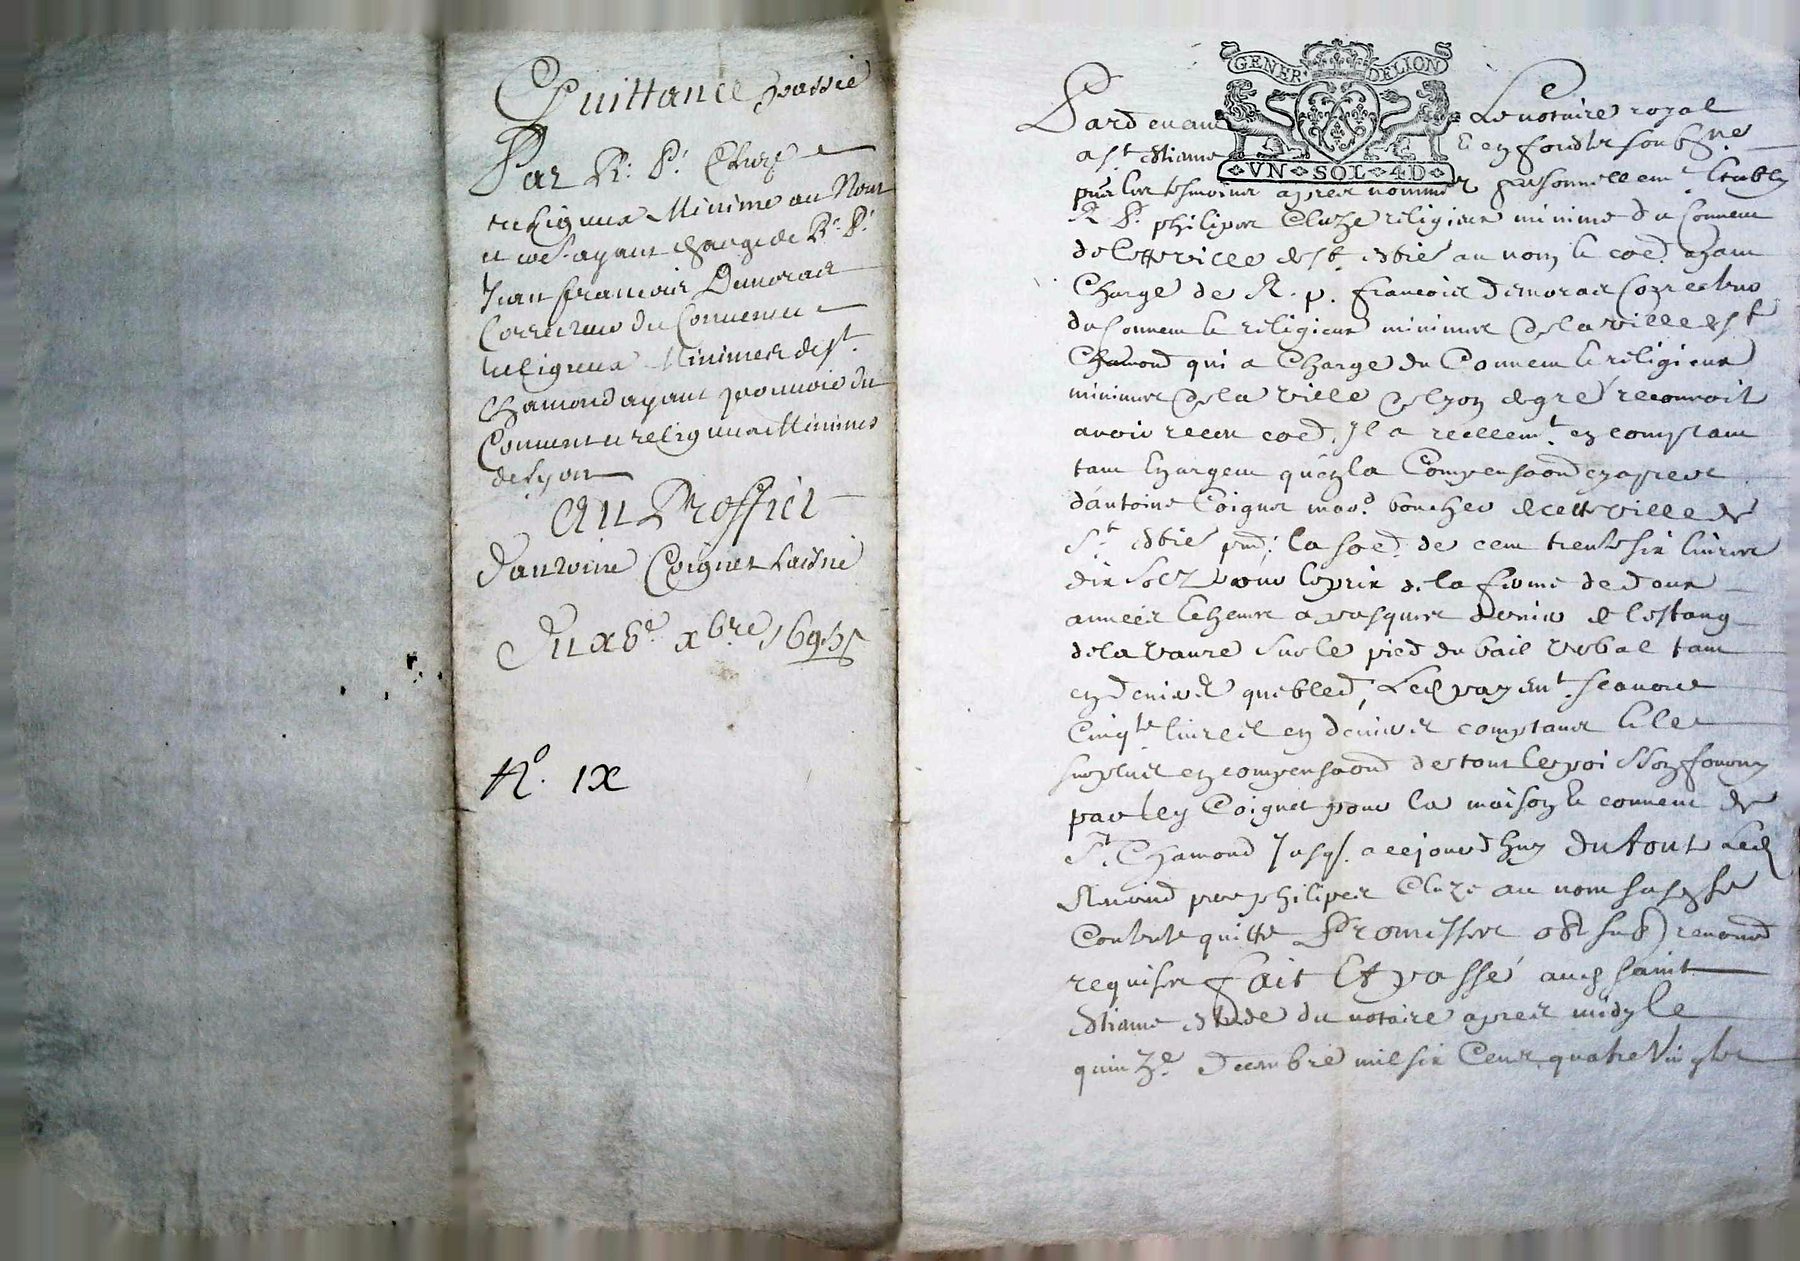 Quittance passée
Par R. P. Cluze
religieux Minime au Nom
et coe. ayant charge de R. P.
Jean francois Demorar
Correcteur du Convent et
religieux Minimes de st.
chamond ayant pouvoir du
Convent et religieux Minimes
de Lyon
Au Proffict
d'antoine Coignet Laisné
Du xve. xbre 1695
No. IX
GENER. DELION
VN SOL 4D
Pardevant Le notaire royal
a st. etienne en forestz soubsne.
R. P. philipes Cluze religieux minime du Convent
de cette ville de st. etie. au nom et coe. ayant
Charge de R. p. francois demorar Correcteur
du Convent et religieux minimes de la ville de st.
Chamond qui a Charge du Convent et religieux
minimes de la ville de lyon de gre reconnoit
avoir receu coe. Il a reellemt. en comptant
tant en argent qu'en la Compensaon. cy apres
d'antoine Coignet mard. boucher de cette ville de
st. etie. la soe. de cent trente six livres
dix solz pour le prix de la ferme de deux
annees de l'estang
de la Vaure sur le pied du bail verbal tant
en deniers que bled,
Cinqte. livres en deniers comptant et le
surplus en compensaon. de tout le poisson fourny
par led. Coignet pour la maison et convent de
St. Chamond Jusq. a cejourdhuy du tout Led.
Reverend pere philipes Cluze au nom susd. se
Contente quitte Promesses obl. sub. renond.
requises fait Et passé aud. saint
etienne etude du notaire apres midy le
quinze. decembre mil six Cent quatre Vingtz